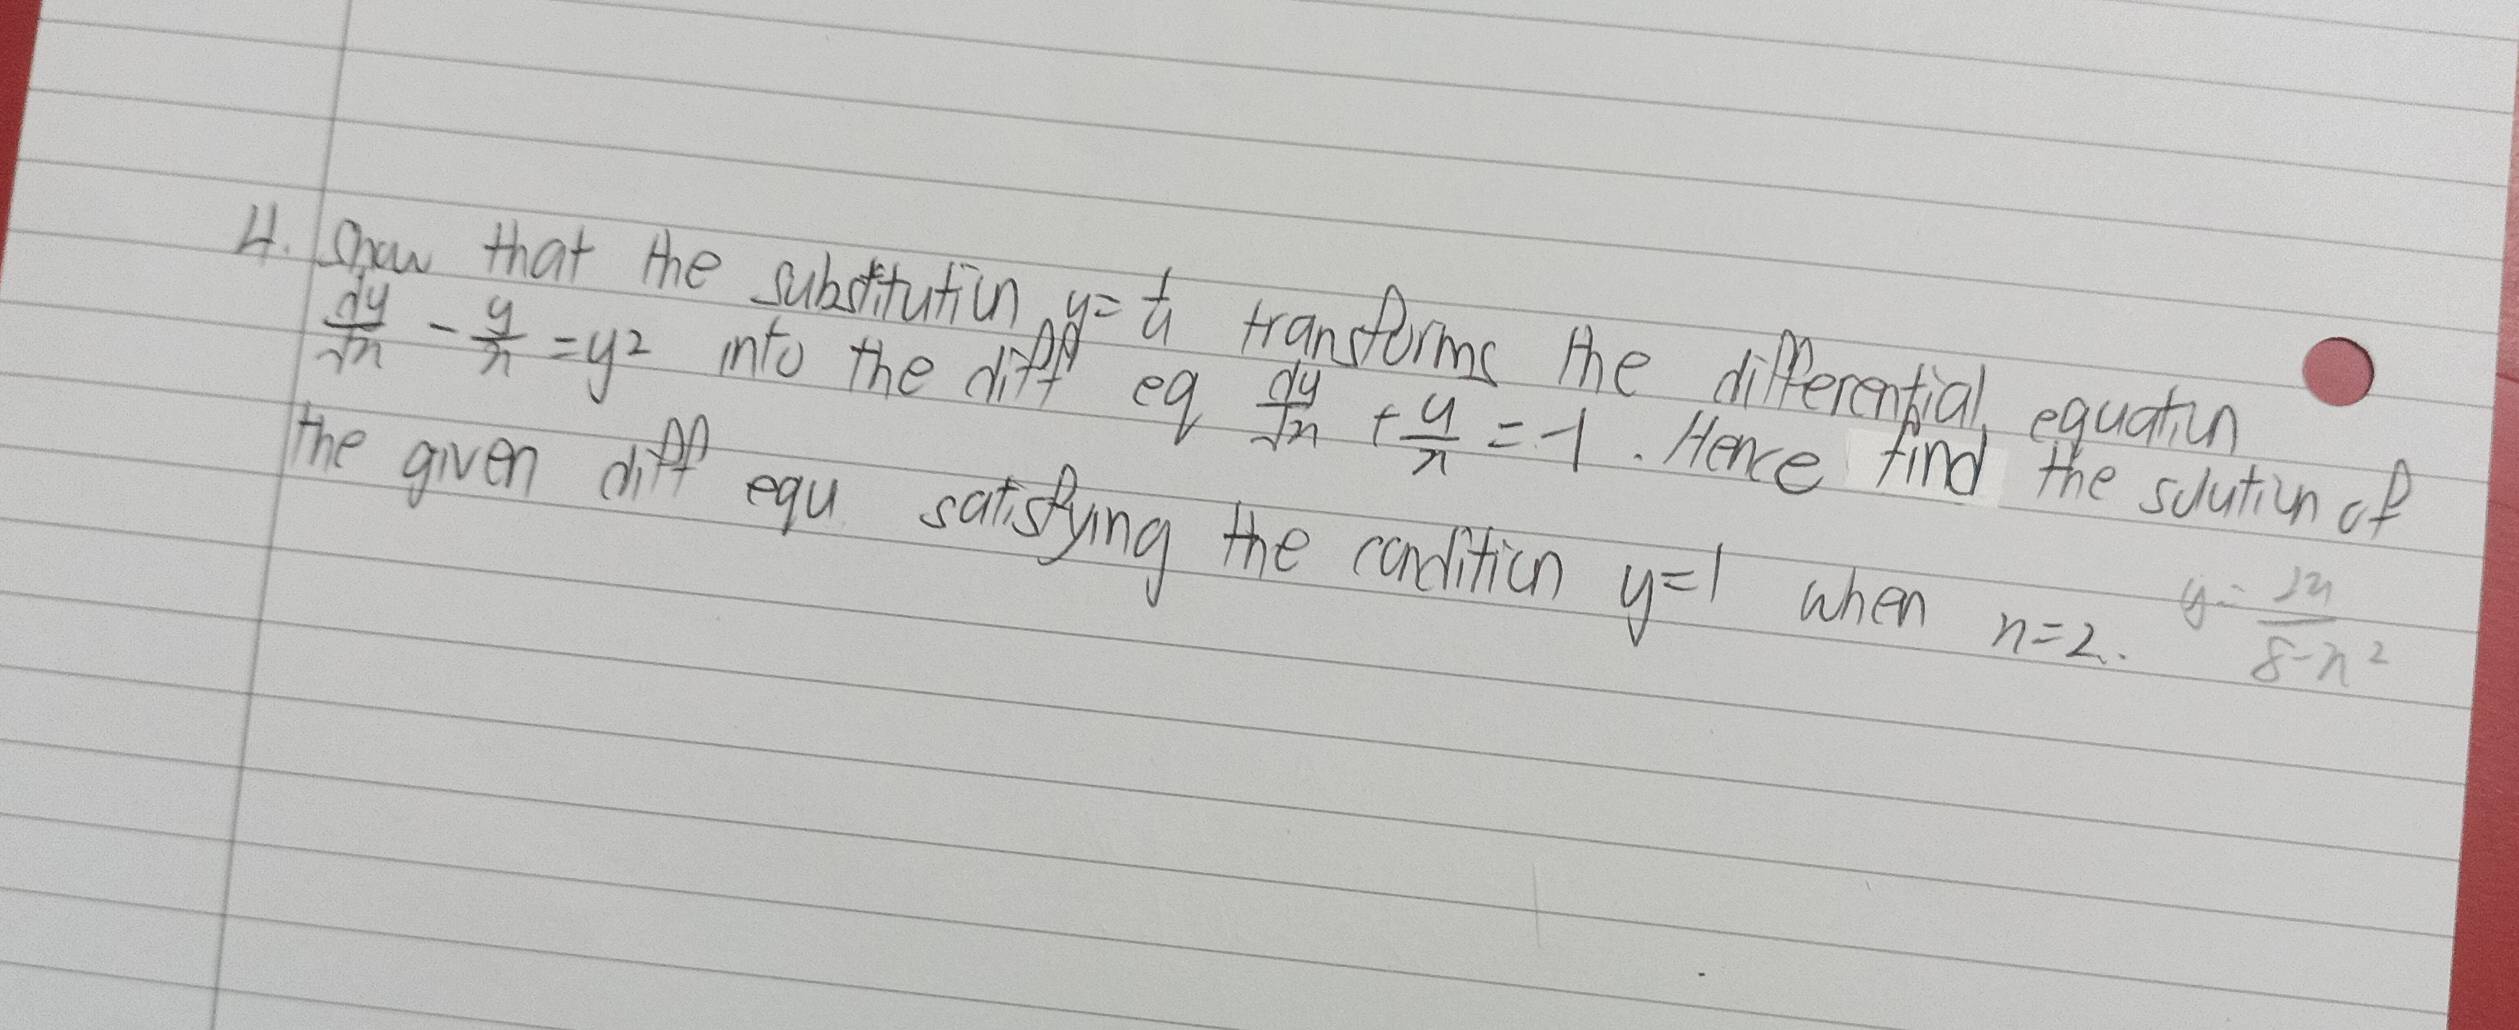 4. Show that the substitution y = 1/u transforms the differential equation
dy/dx - y/x = y² into the diff eq dy/dx + u/x = -1. Hence find the solution of
the given diff equ satisfying the condition y=1 when x=2. y = 2x/(8-x²)